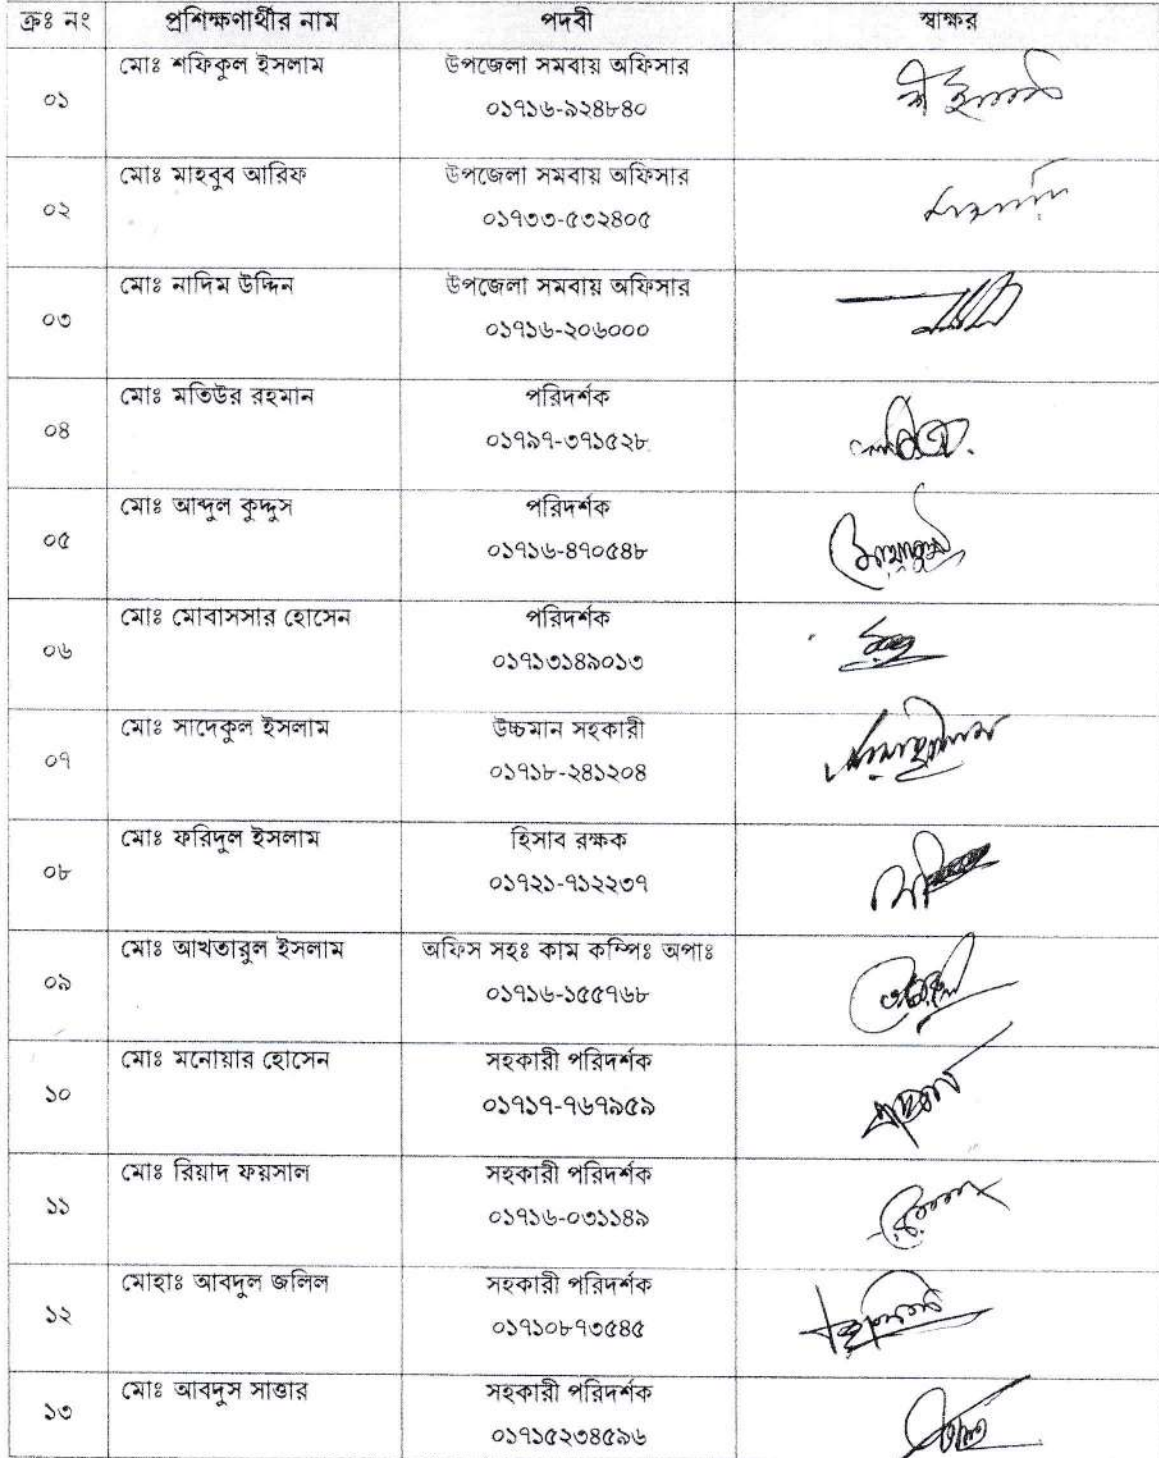 ক্রঃ নং প্রশিক্ষণার্থীর নাম পদবী স্বাক্ষর
মোঃ শফিকুল ইসলাম উপজেলা সমবায় অফিসার
০১ ০১৭১৬-৯২৪৮৪০
মোঃ মাহবুব আরিফ উপজেলা সমবায় অফিসার
০২ ০১৭৩৩-৫৩২৪০৫
মোঃ নাদিম উদ্দিন উপজেলা সমবায় অফিসার
০৩ ০১৭১৬-২০৬০০০
মোঃ মতিউর রহমান পরিদর্শক
০৪ ০১৭৯৭-৩৭১৫২৮
মোঃ আব্দুল কুদ্দুস পরিদর্শক
০৫ ০১৭১৬-৪৭০৫৪৮
মোঃ মোবাসসার হোসেন পরিদর্শক
০৬ ০১৭১৩১৪৯০১৩
মোঃ সাদেকুল ইসলাম উচ্চমান সহকারী
০৭ ০১৭১৮-২৪১২০৪
মোঃ ফরিদুল ইসলাম হিসাব রক্ষক
০৮ ০১৭২১-৭১২২৩৭
মোঃ আখতারুল ইসলাম অফিস সহঃ কাম কম্পিঃ অপাঃ
০৯ ০১৭১৬-১৫৫৭৬৮
মোঃ মনোয়ার হোসেন সহকারী পরিদর্শক
১০ ০১৭১৭-৭৬৭৯৫৯
মোঃ রিয়াদ ফয়সাল সহকারী পরিদর্শক
১১ ০১৭১৬-০৩১১৪৯
মোহাঃ আবদুল জলিল সহকারী পরিদর্শক
১২ ০১৭১০৮৭৩৫৪৫
মোঃ আবদুস সাত্তার সহকারী পরিদর্শক
১৩ ০১৭১৫২৩৪৫৯৬